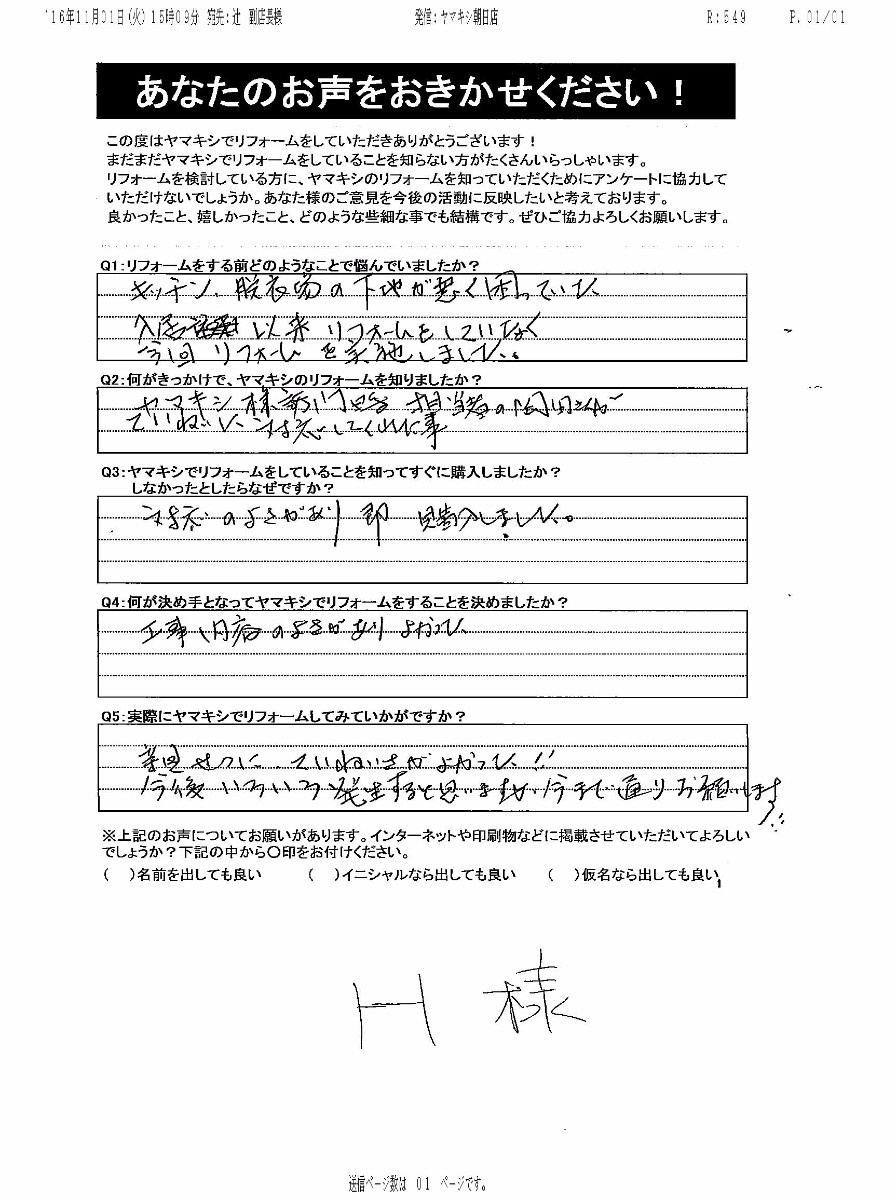 '16年11月01日(火)15時09分 宛先:辻 副店長様 発信:ヤマキシ朝日店 R:549 P.01/01
あなたのお声をおきかせください！
この度はヤマキシでリフォームをしていただきありがとうございます！
まだまだヤマキシでリフォームをしていることを知らない方がたくさんいらっしゃいます。
リフォームを検討している方に、ヤマキシのリフォームを知っていただくためにアンケートに協力して
いただけないでしょうか。あなた様のご意見を今後の活動に反映したいと考えております。
良かったこと、嬉しかったこと、どのような些細な事でも結構です。ぜひご協力よろしくお願いします。
Q1:リフォームをする前どのようなことで悩んでいましたか？
キッチン、脱衣場の下地が悪く困っていた
入居 以来 リフォームをしていなく
今回 リフォームを実施しました。
Q2:何がきっかけで、ヤマキシのリフォームを知りましたか？
ヤマキシ様 担当者の
ていねいに対応してくれた事
Q3:ヤマキシでリフォームをしていることを知ってすぐに購入しましたか？
しなかったとしたらなぜですか？
対応のよさがあり 即 購入しました。
Q4:何が決め手となってヤマキシでリフォームをすることを決めましたか？
工事内容のよさがあり よかった
Q5:実際にヤマキシでリフォームしてみていかがですか？
親せつに、ていねいさがよかった!!
今後いろいろ発生すると思いますが今まで通りお願いします
※上記のお声についてお願いがあります。インターネットや印刷物などに掲載させていただいてよろしい
でしょうか？下記の中から〇印をお付けください。
( )名前を出しても良い ( )イニシャルなら出しても良い ( )仮名なら出しても良い
H 様
送信ページ数は 01 ページです。